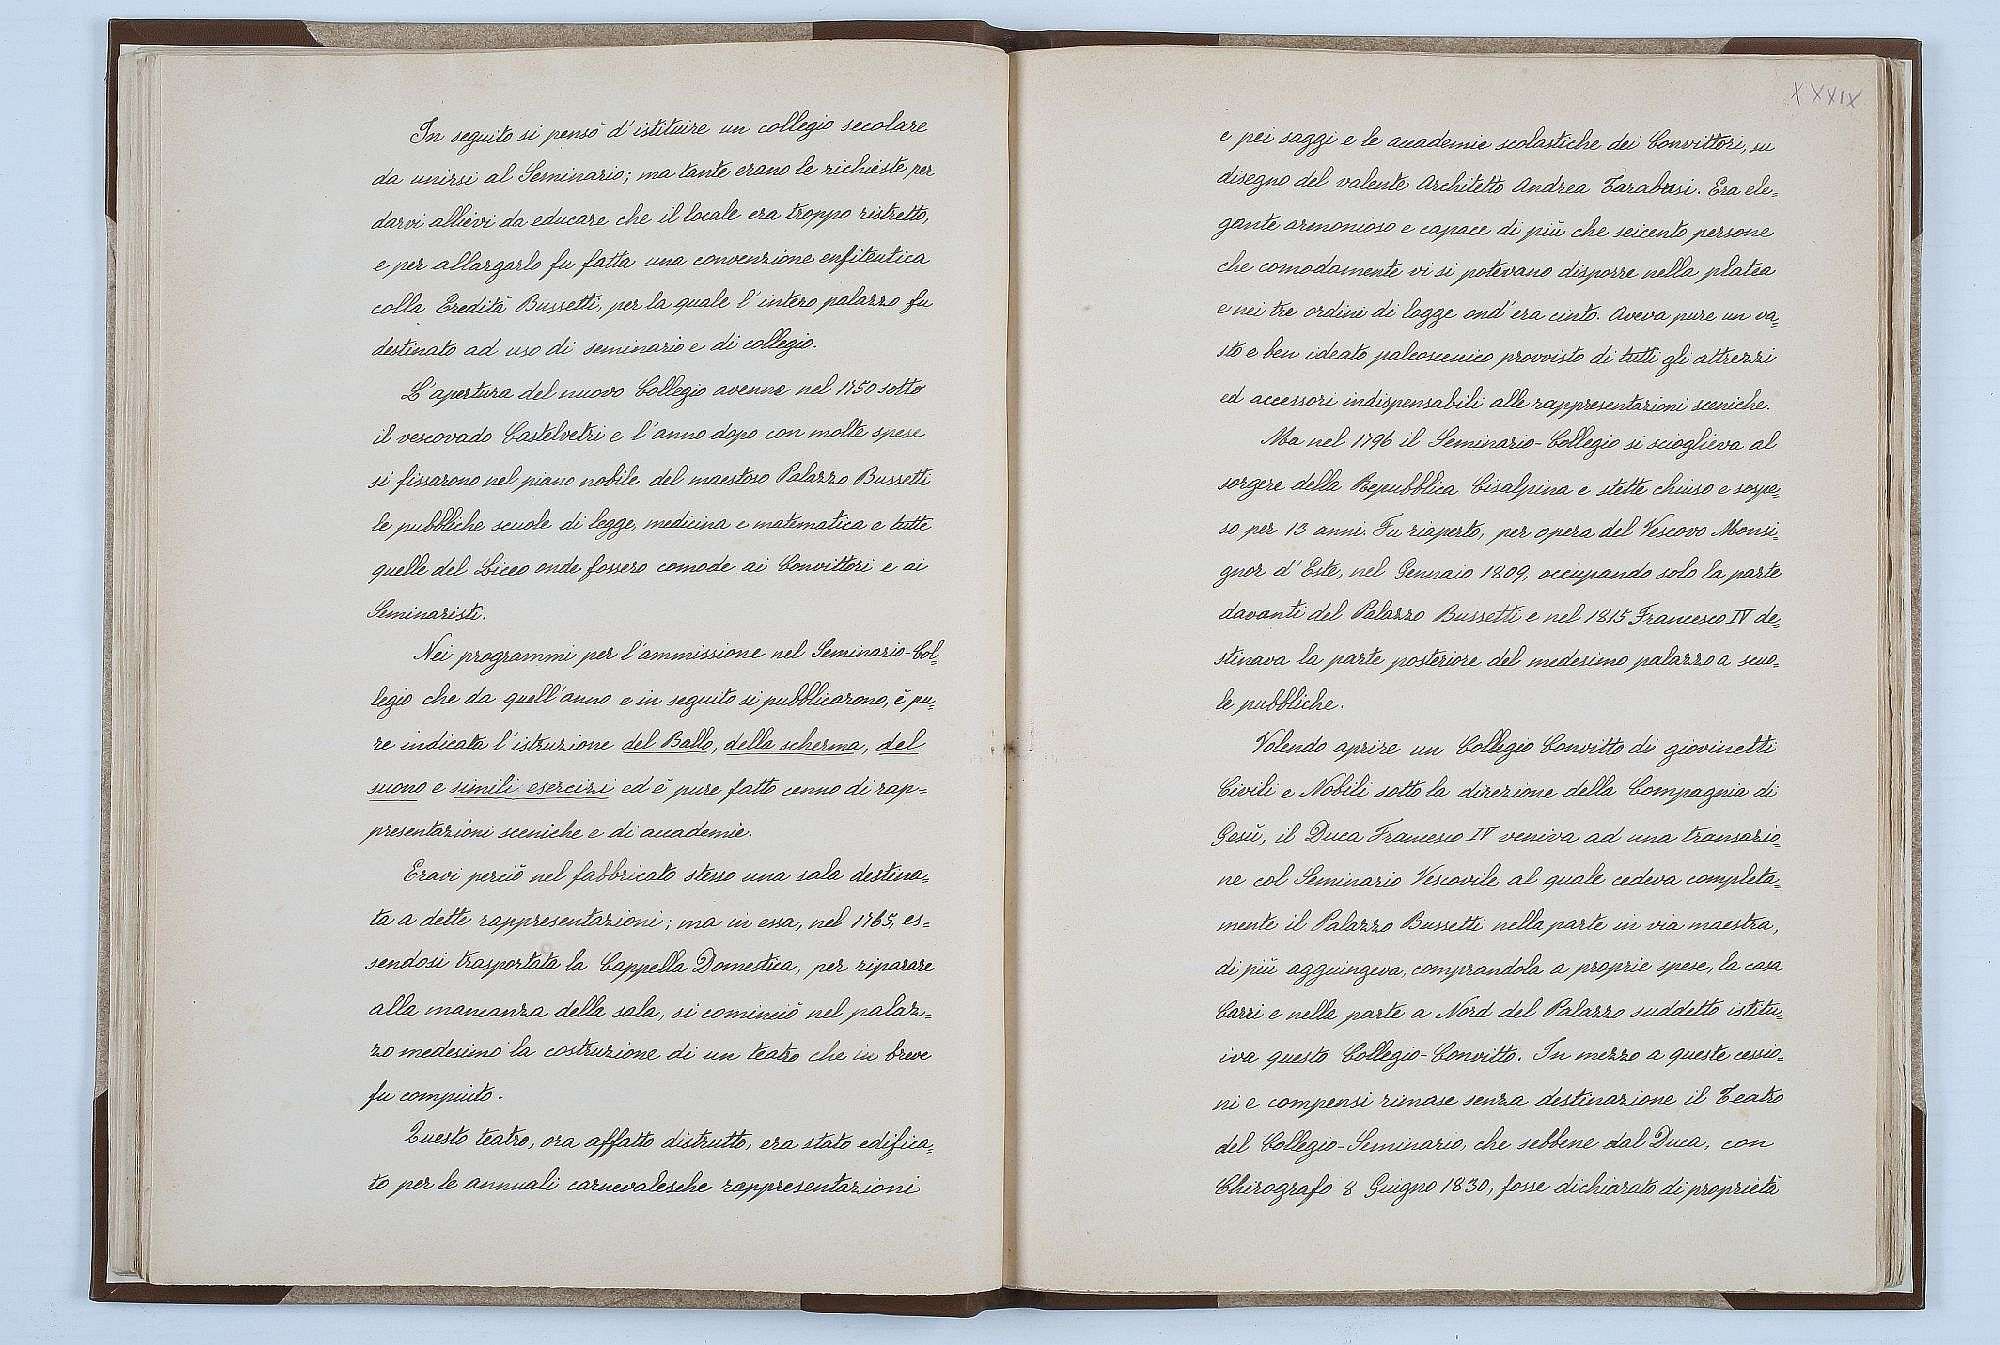 In seguito si pensò d'istituire un collegio secolare
da unirsi al Seminario; ma tante erano le richieste per
darvi allievi da educare che il locale era troppo ristretto,
e per allargarlo fu fatta una convenzione enfiteutica
colla Eredità Bussetti, per la quale l'intero palazzo fu
destinato ad uso di seminario e di collegio.
L'apertura del nuovo Collegio avenne nel 1750 sotto
il vescovado Castelvetri e l'anno dopo con molte spese
si fissarono nel piano nobile del maestoso Palazzo Bussetti
le pubbliche scuole di legge, medicina e matematica e tutte
quelle del Liceo onde fossero comode ai Convittori e ai
Seminaristi.
Nei programmi per l'ammissione nel Seminario-Col=
legio che da quell'anno e in seguito si pubblicarono, è pu=
re indicata l'istruzione del Ballo, della scherma, del
suono e simili esercizi ed è pure fatto cenno di rap=
presentazioni sceniche e di accademie.
Eravi perciò nel fabbricato stesso una sala destina=
ta a dette rappresentazioni; ma in essa, nel 1765, es=
sendosi trasportata la Cappella Domestica, per riparare
alla mancanza della sala, si cominciò nel palaz=
zo medesimo la costruzione di un teatro che in breve
fu compiuto.
Questo teatro, ora affatto distrutto, era stato edifica=
to per le annuali carnevalesche rappresentazioni
XXXIX
e pei saggi e le accademie scolastiche dei Convittori, su
disegno del valente Architetto Andrea Tarabusi. Era ele=
gante armonioso e capace di più che seicento persone
che comodamente vi si potevano disporre nella platea
e nei tre ordini di logge ond'era cinto. Aveva pure un va=
sto e ben ideato palcoscenico provvisto di tutti gli attrezzi
ed accessori indispensabili alle rappresentazioni sceniche.
Ma nel 1796 il Seminario-Collegio si scioglieva al
sorgere della Repubblica Cisalpina e stette chiuso e sospe=
so per 13 anni. Fu riaperto, per opera del Vescovo Monsi=
gnor d'Este, nel Gennaio 1809, occupando solo la parte
davanti del Palazzo Bussetti e nel 1815 Francesco IV de=
stinava la parte posteriore del medesimo palazzo a scuo=
le pubbliche.
Volendo aprire un Collegio Convitto di giovinetti
Civili e Nobili sotto la direzione della Compagnia di
Gesù, il Duca Francesco IV veniva ad una transazio=
ne col Seminario Vescovile al quale cedeva completa=
mente il Palazzo Bussetti nella parte in via maestra,
di più aggiungeva, comprandola a proprie spese, la casa
Carri e nella parte a Nord del Palazzo suddetto istitu=
iva questo Collegio-Convitto. In mezzo a queste cessio=
ni e compensi rimase senza destinazione il Teatro
del Collegio-Seminario, che sebbene dal Duca, con
Chirografo 8 Giugno 1830, fosse dichiarato di proprietà